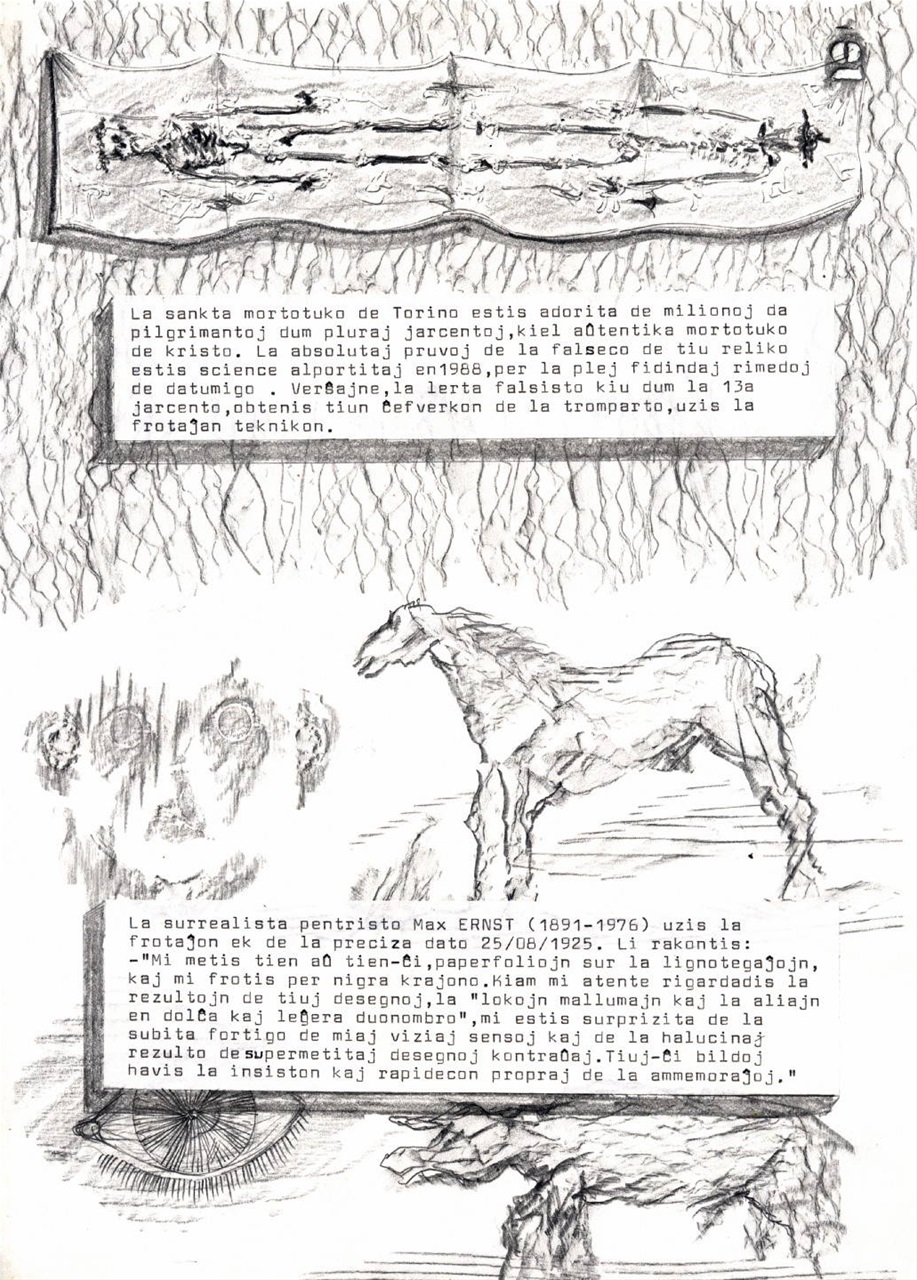 19
La sankta mortotuko de Torino estis adorita de milionoj da
pilgrimantoj dum pluraj jarcentoj,kiel aŭtentika mortotuko
de kristo. La absolutaj pruvoj de la falseco de tiu reliko
estis science alportitaj en1988,per la plej fidindaj rimedoj
de datumigo . Verŝajne,la lerta falsisto kiu dum la 13a
jarcento,obtenis tiun ĉefverkon de la tromparto,uzis la
frotaĵan teknikon.
La surrealista pentristo Max ERNST (1891-1976) uzis la
frotaĵon ek de la preciza dato 25/08/1925. Li rakontis:
-"Mi metis tien aŭ tien-ĉi,paperfoliojn sur la lignotegaĵojn,
kaj mi frotis per nigra krajono.Kiam mi atente rigardadis la
rezultojn de tiuj desegnoj,la "lokojn mallumajn kaj la aliajn
en dolĉa kaj leĝera duonombro",mi estis surprizita de la
subita fortigo de miaj viziaj sensoj kaj de la halucinaj
rezulto de supermetitaj desegnoj kontraŭaj.Tiuj-ĉi bildoj
havis la insiston kaj rapidecon propraj de la ammemoraĵoj."